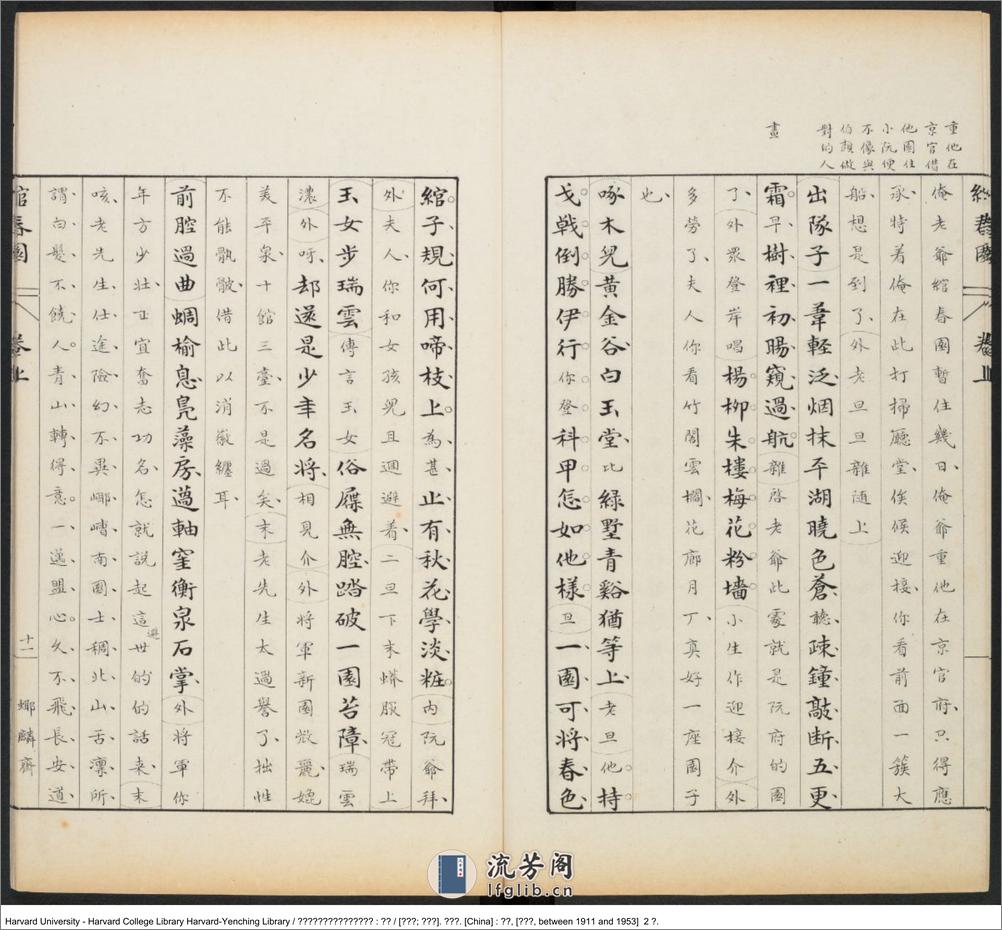 重他在
京官借
他園住
小阮便
不像與
伯顏做
對的人
畫
綰春園 卷上
俺老爺綰春園暫住幾日俺爺重他在京官府只得應
承特着俺在此打掃廳堂俟候迎接你看前面一簇大
船想是到了外老旦旦雜随上
出隊子一葦輕泛烟抹平湖曉色蒼聽疎鐘敲断五更
霜早樹裡初暘窺過航雜啓老爺此處就是阮府的園
了外眾登岸唱楊柳朱樓梅花粉墻小生作迎接介外
多勞了夫人你看竹閣雲櫊花廊月丁真好一座園子
也
啄木兒黃金谷白玉堂比綠墅青谿猶等上老旦他持
戈戟倒勝伊行你登科甲怎如他樣旦一園可將春色
綰子規何用啼枝上為甚止有秋花學淡粧内阮爺拜
外夫人你和女孩兒且迴避着二旦下末蟒服冠帶上
玉女步瑞雲傳言玉女俗屧無腔踏破一園苔障瑞雲
濃外呀却還是少年名將相見介外將軍新園微麗媲
美平泉十館三臺不是過矣末老先生太過譽了拙性
不能骯髒借此以消嶶纏耳
前腔過曲蜩榆息鳧藻房薖軸窐衡泉石掌外將軍你
年方少壯正宜奮志功名怎就說起這避世的的話來末
咳老先生仕途險幻不異嶰嶆南園士稠北山舌凛所
謂白髮不饒人青山轉得意一邊盟心久不飛長安道
綰春園 卷上 十一 螂麟齋
流芳阁
lfglib.cn
Harvard University - Harvard College Library Harvard-Yenching Library / ??????????????? : ?? / [???; ???]. ???. [China] : ??, [???, between 1911 and 1953] 2 ?.